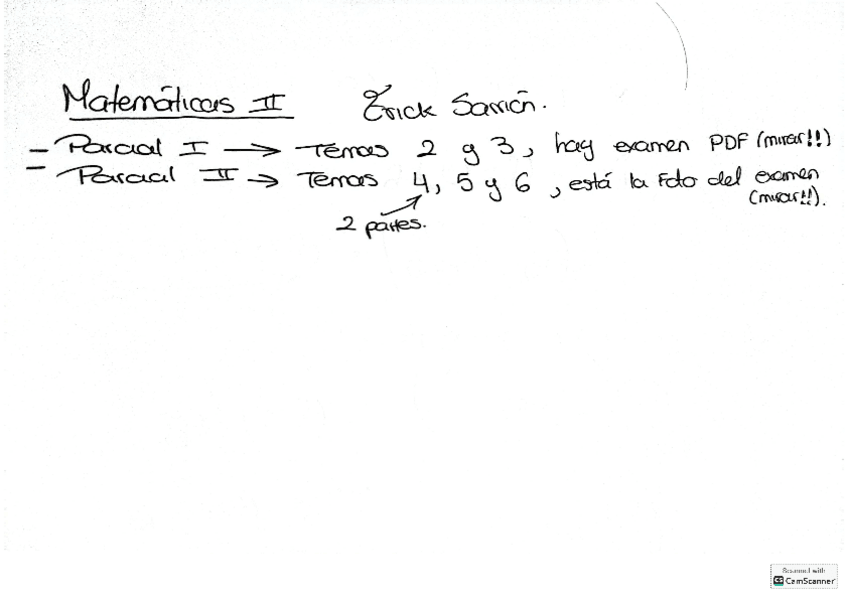 Matemáticas II Erick Sarrión.
- Parcial I → Temas 2 y 3, hay examen PDF (mirar!!)
- Parcial II → Temas 4, 5 y 6, está la Foto del examen
(mirar!!).
2 partes.
Scanned with
CS CamScanner